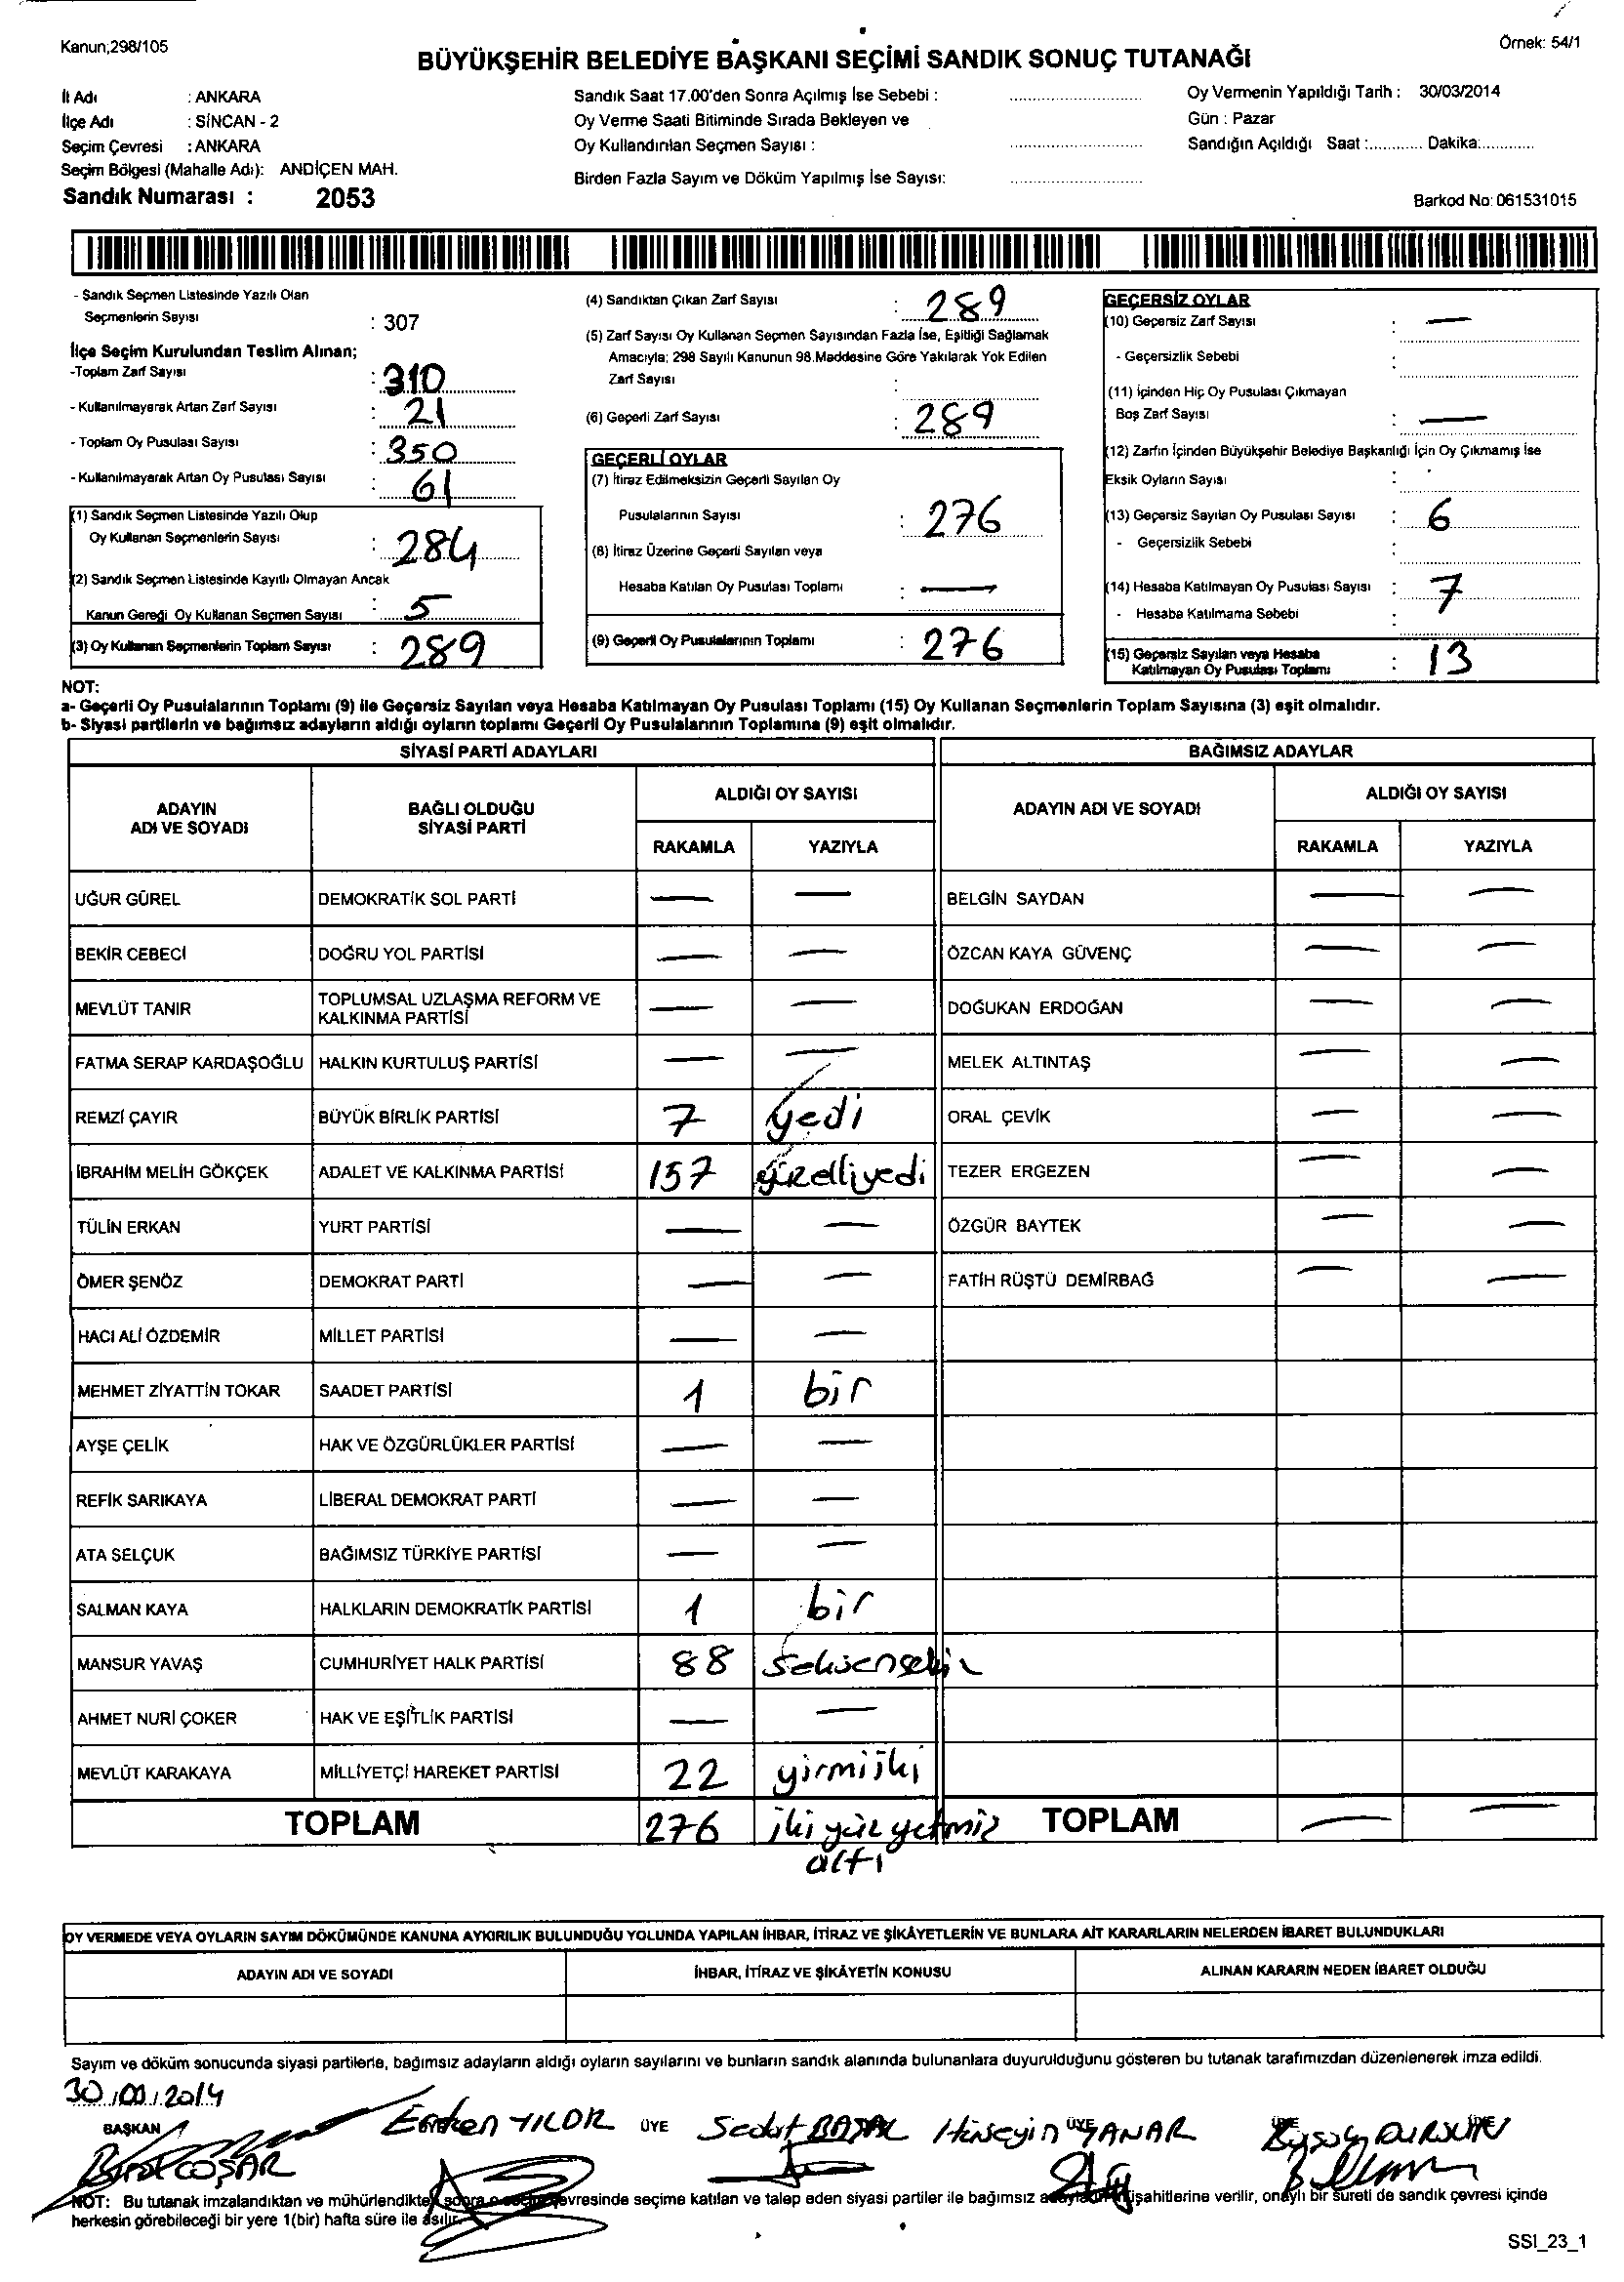 Kanun;298/105
Örnek: 54/1
BÜYÜKŞEHİR BELEDİYE BAŞKANI SEÇİMİ SANDIK SONUÇ TUTANAĞI
İl Adı : ANKARA
İlçe Adı : SİNCAN - 2
Seçim Çevresi : ANKARA
Seçim Bölgesi (Mahalle Adı): ANDİÇEN MAH.
Sandık Numarası : 2053
Sandık Saat 17.00'den Sonra Açılmış İse Sebebi :
Oy Verme Saati Bitiminde Sırada Bekleyen ve
Oy Kullandırılan Seçmen Sayısı :
Birden Fazla Sayım ve Döküm Yapılmış İse Sayısı:
Oy Vermenin Yapıldığı Tarih : 30/03/2014
Gün : Pazar
Sandığın Açıldığı Saat :............ Dakika:............
Barkod No: 061531015
- Sandık Seçmen Listesinde Yazılı Olan
Seçmenlerin Sayısı : 307
İlçe Seçim Kurulundan Teslim Alınan;
-Toplam Zarf Sayısı : 310
- Kullanılmayarak Artan Zarf Sayısı : 21
- Toplam Oy Pusulası Sayısı : 350
- Kullanılmayarak Artan Oy Pusulası Sayısı : 61
(1) Sandık Seçmen Listesinde Yazılı Olup
Oy Kullanan Seçmenlerin Sayısı : 284
(2) Sandık Seçmen Listesinde Kayıtlı Olmayan Ancak
Kanun Gereği Oy Kullanan Seçmen Sayısı : 5
(3) Oy Kullanan Seçmenlerin Toplam Sayısı : 289
(4) Sandıktan Çıkan Zarf Sayısı : 289
(5) Zarf Sayısı Oy Kullanan Seçmen Sayısından Fazla İse, Eşitliği Sağlamak
Amacıyla; 298 Sayılı Kanunun 98.Maddesine Göre Yakılarak Yok Edilen
Zarf Sayısı :
(6) Geçerli Zarf Sayısı : 289
GEÇERLİ OYLAR
(7) İtiraz Edilmeksizin Geçerli Sayılan Oy
Pusulalarının Sayısı : 276
(8) İtiraz Üzerine Geçerli Sayılan veya
Hesaba Katılan Oy Pusulası Toplamı : —
(9) Geçerli Oy Pusulalarının Toplamı : 276
GEÇERSİZ OYLAR
(10) Geçersiz Zarf Sayısı : —
- Geçersizlik Sebebi :
(11) İçinden Hiç Oy Pusulası Çıkmayan
Boş Zarf Sayısı : —
(12) Zarfın İçinden Büyükşehir Belediye Başkanlığı İçin Oy Çıkmamış İse
Eksik Oyların Sayısı :
(13) Geçersiz Sayılan Oy Pusulası Sayısı : 6
- Geçersizlik Sebebi :
(14) Hesaba Katılmayan Oy Pusulası Sayısı : 7
- Hesaba Katılmama Sebebi :
(15) Geçersiz Sayılan veya Hesaba
Katılmayan Oy Pusulası Toplamı : 13
NOT:
a- Geçerli Oy Pusulalarının Toplamı (9) ile Geçersiz Sayılan veya Hesaba Katılmayan Oy Pusulası Toplamı (15) Oy Kullanan Seçmenlerin Toplam Sayısına (3) eşit olmalıdır.
b- Siyasi partilerin ve bağımsız adayların aldığı oyların toplamı Geçerli Oy Pusulalarının Toplamına (9) eşit olmalıdır.
SİYASİ PARTİ ADAYLARI
ADAYIN
ADI VE SOYADI
BAĞLI OLDUĞU
SİYASİ PARTİ
ALDIĞI OY SAYISI
RAKAMLA YAZIYLA
UĞUR GÜREL DEMOKRATİK SOL PARTİ — —
BEKİR CEBECİ DOĞRU YOL PARTİSİ — —
MEVLÜT TANIR TOPLUMSAL UZLAŞMA REFORM VE
KALKINMA PARTİSİ — —
FATMA SERAP KARDAŞOĞLU HALKIN KURTULUŞ PARTİSİ — —
REMZİ ÇAYIR BÜYÜK BİRLİK PARTİSİ 7 yedi
İBRAHİM MELİH GÖKÇEK ADALET VE KALKINMA PARTİSİ 157 yüzelliyedi
TÜLİN ERKAN YURT PARTİSİ — —
ÖMER ŞENÖZ DEMOKRAT PARTİ — —
HACI ALİ ÖZDEMİR MİLLET PARTİSİ — —
MEHMET ZİYATTİN TOKAR SAADET PARTİSİ 1 bir
AYŞE ÇELİK HAK VE ÖZGÜRLÜKLER PARTİSİ — —
REFİK SARIKAYA LİBERAL DEMOKRAT PARTİ — —
ATA SELÇUK BAĞIMSIZ TÜRKİYE PARTİSİ — —
SALMAN KAYA HALKLARIN DEMOKRATİK PARTİSİ 1 bir
MANSUR YAVAŞ CUMHURİYET HALK PARTİSİ 88 Seksensekiz
AHMET NURİ ÇOKER HAK VE EŞİTLİK PARTİSİ — —
MEVLÜT KARAKAYA MİLLİYETÇİ HAREKET PARTİSİ 22 yirmiiki
TOPLAM 276 iki yüz yetmiş
altı
BAĞIMSIZ ADAYLAR
ADAYIN ADI VE SOYADI
ALDIĞI OY SAYISI
RAKAMLA YAZIYLA
BELGİN SAYDAN — —
ÖZCAN KAYA GÜVENÇ — —
DOĞUKAN ERDOĞAN — —
MELEK ALTINTAŞ — —
ORAL ÇEVİK — —
TEZER ERGEZEN — —
ÖZGÜR BAYTEK — —
FATİH RÜŞTÜ DEMİRBAĞ — —
TOPLAM — —
OY VERMEDE VEYA OYLARIN SAYIM DÖKÜMÜNDE KANUNA AYKIRILIK BULUNDUĞU YOLUNDA YAPILAN İHBAR, İTİRAZ VE ŞİKÂYETLERİN VE BUNLARA AİT KARARLARIN NELERDEN İBARET BULUNDUKLARI
ADAYIN ADI VE SOYADI İHBAR, İTİRAZ VE ŞİKÂYETİN KONUSU ALINAN KARARIN NEDEN İBARET OLDUĞU
Sayım ve döküm sonucunda siyasi partilerle, bağımsız adayların aldığı oyların sayılarını ve bunların sandık alanında bulunanlara duyurulduğunu gösteren bu tutanak tarafımızdan düzenlenerek imza edildi.
30.03.2014
BAŞKAN ÜYE ÜYE ÜYE
COŞAR
YILDIZ Sedat Hüseyin YANAR DURSUN
NOT: Bu tutanak imzalandıktan ve mühürlendikten sonra o seçim çevresinde seçime katılan ve talep eden siyasi partiler ile bağımsız adayların müşahitlerine verilir, onaylı bir sureti de sandık çevresi içinde
herkesin görebileceği bir yere 1(bir) hafta süre ile asılır.
SSI_23_1